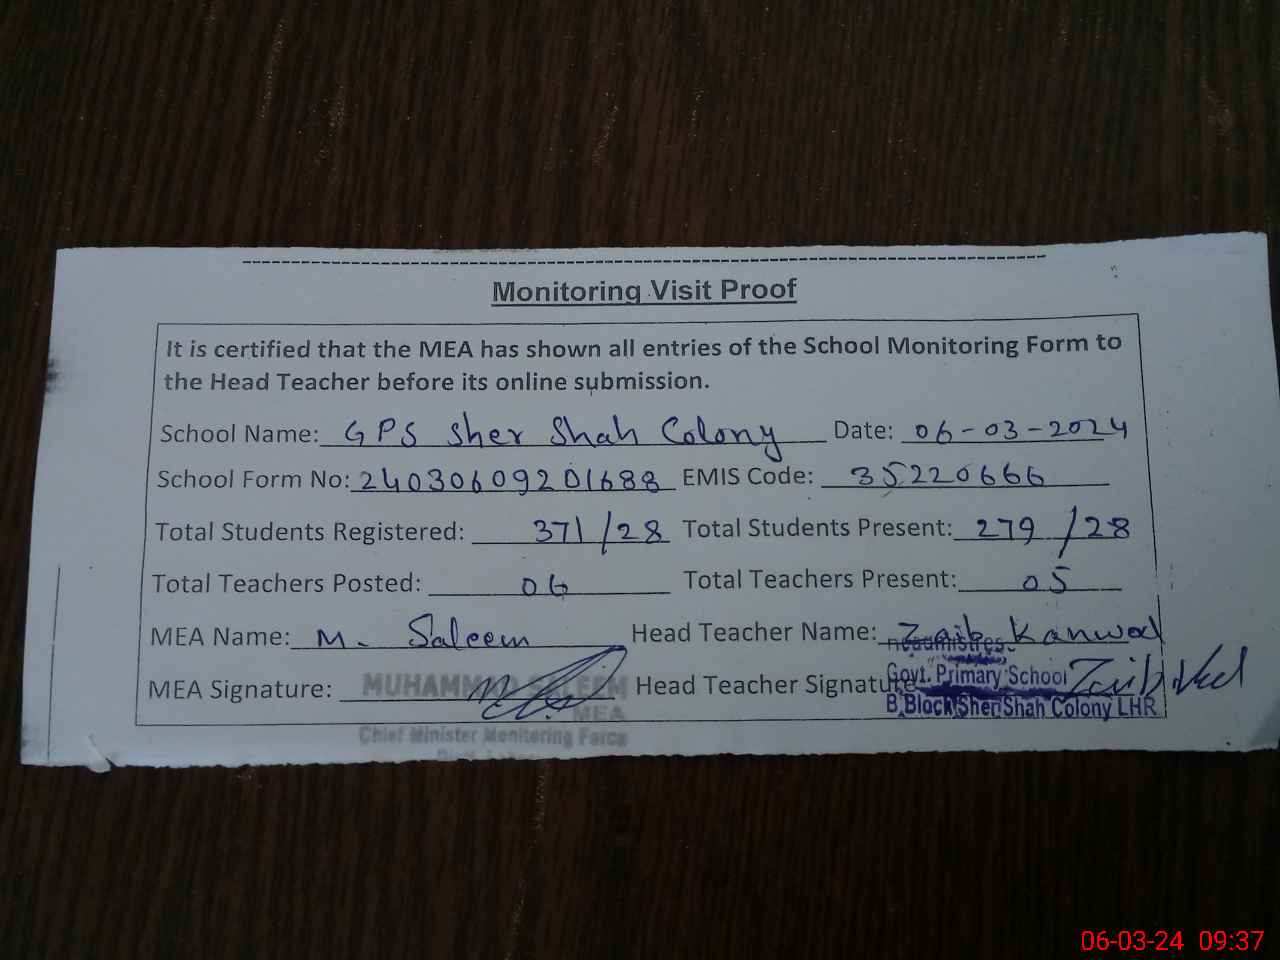 Monitoring Visit Proof
It is certified that the MEA has shown all entries of the School Monitoring Form to
the Head Teacher before its online submission.
School Name: GPS Sher Shah Colony Date: 06-03-2024
School Form No: 24030609201688 EMIS Code: 35220666
Total Students Registered: 371/28 Total Students Present: 279/28
Total Teachers Posted: 06 Total Teachers Present: 05
MEA Name: M. Saleem Head Teacher Name: Zaib Kanwal
Headmistress
MEA Signature: Head Teacher Signature
MUHAMMAD SALEEM
MEA
Chief Minister Monitoring Force
Govt. Primary School
B Block Sher Shah Colony LHR
06-03-24 09:37